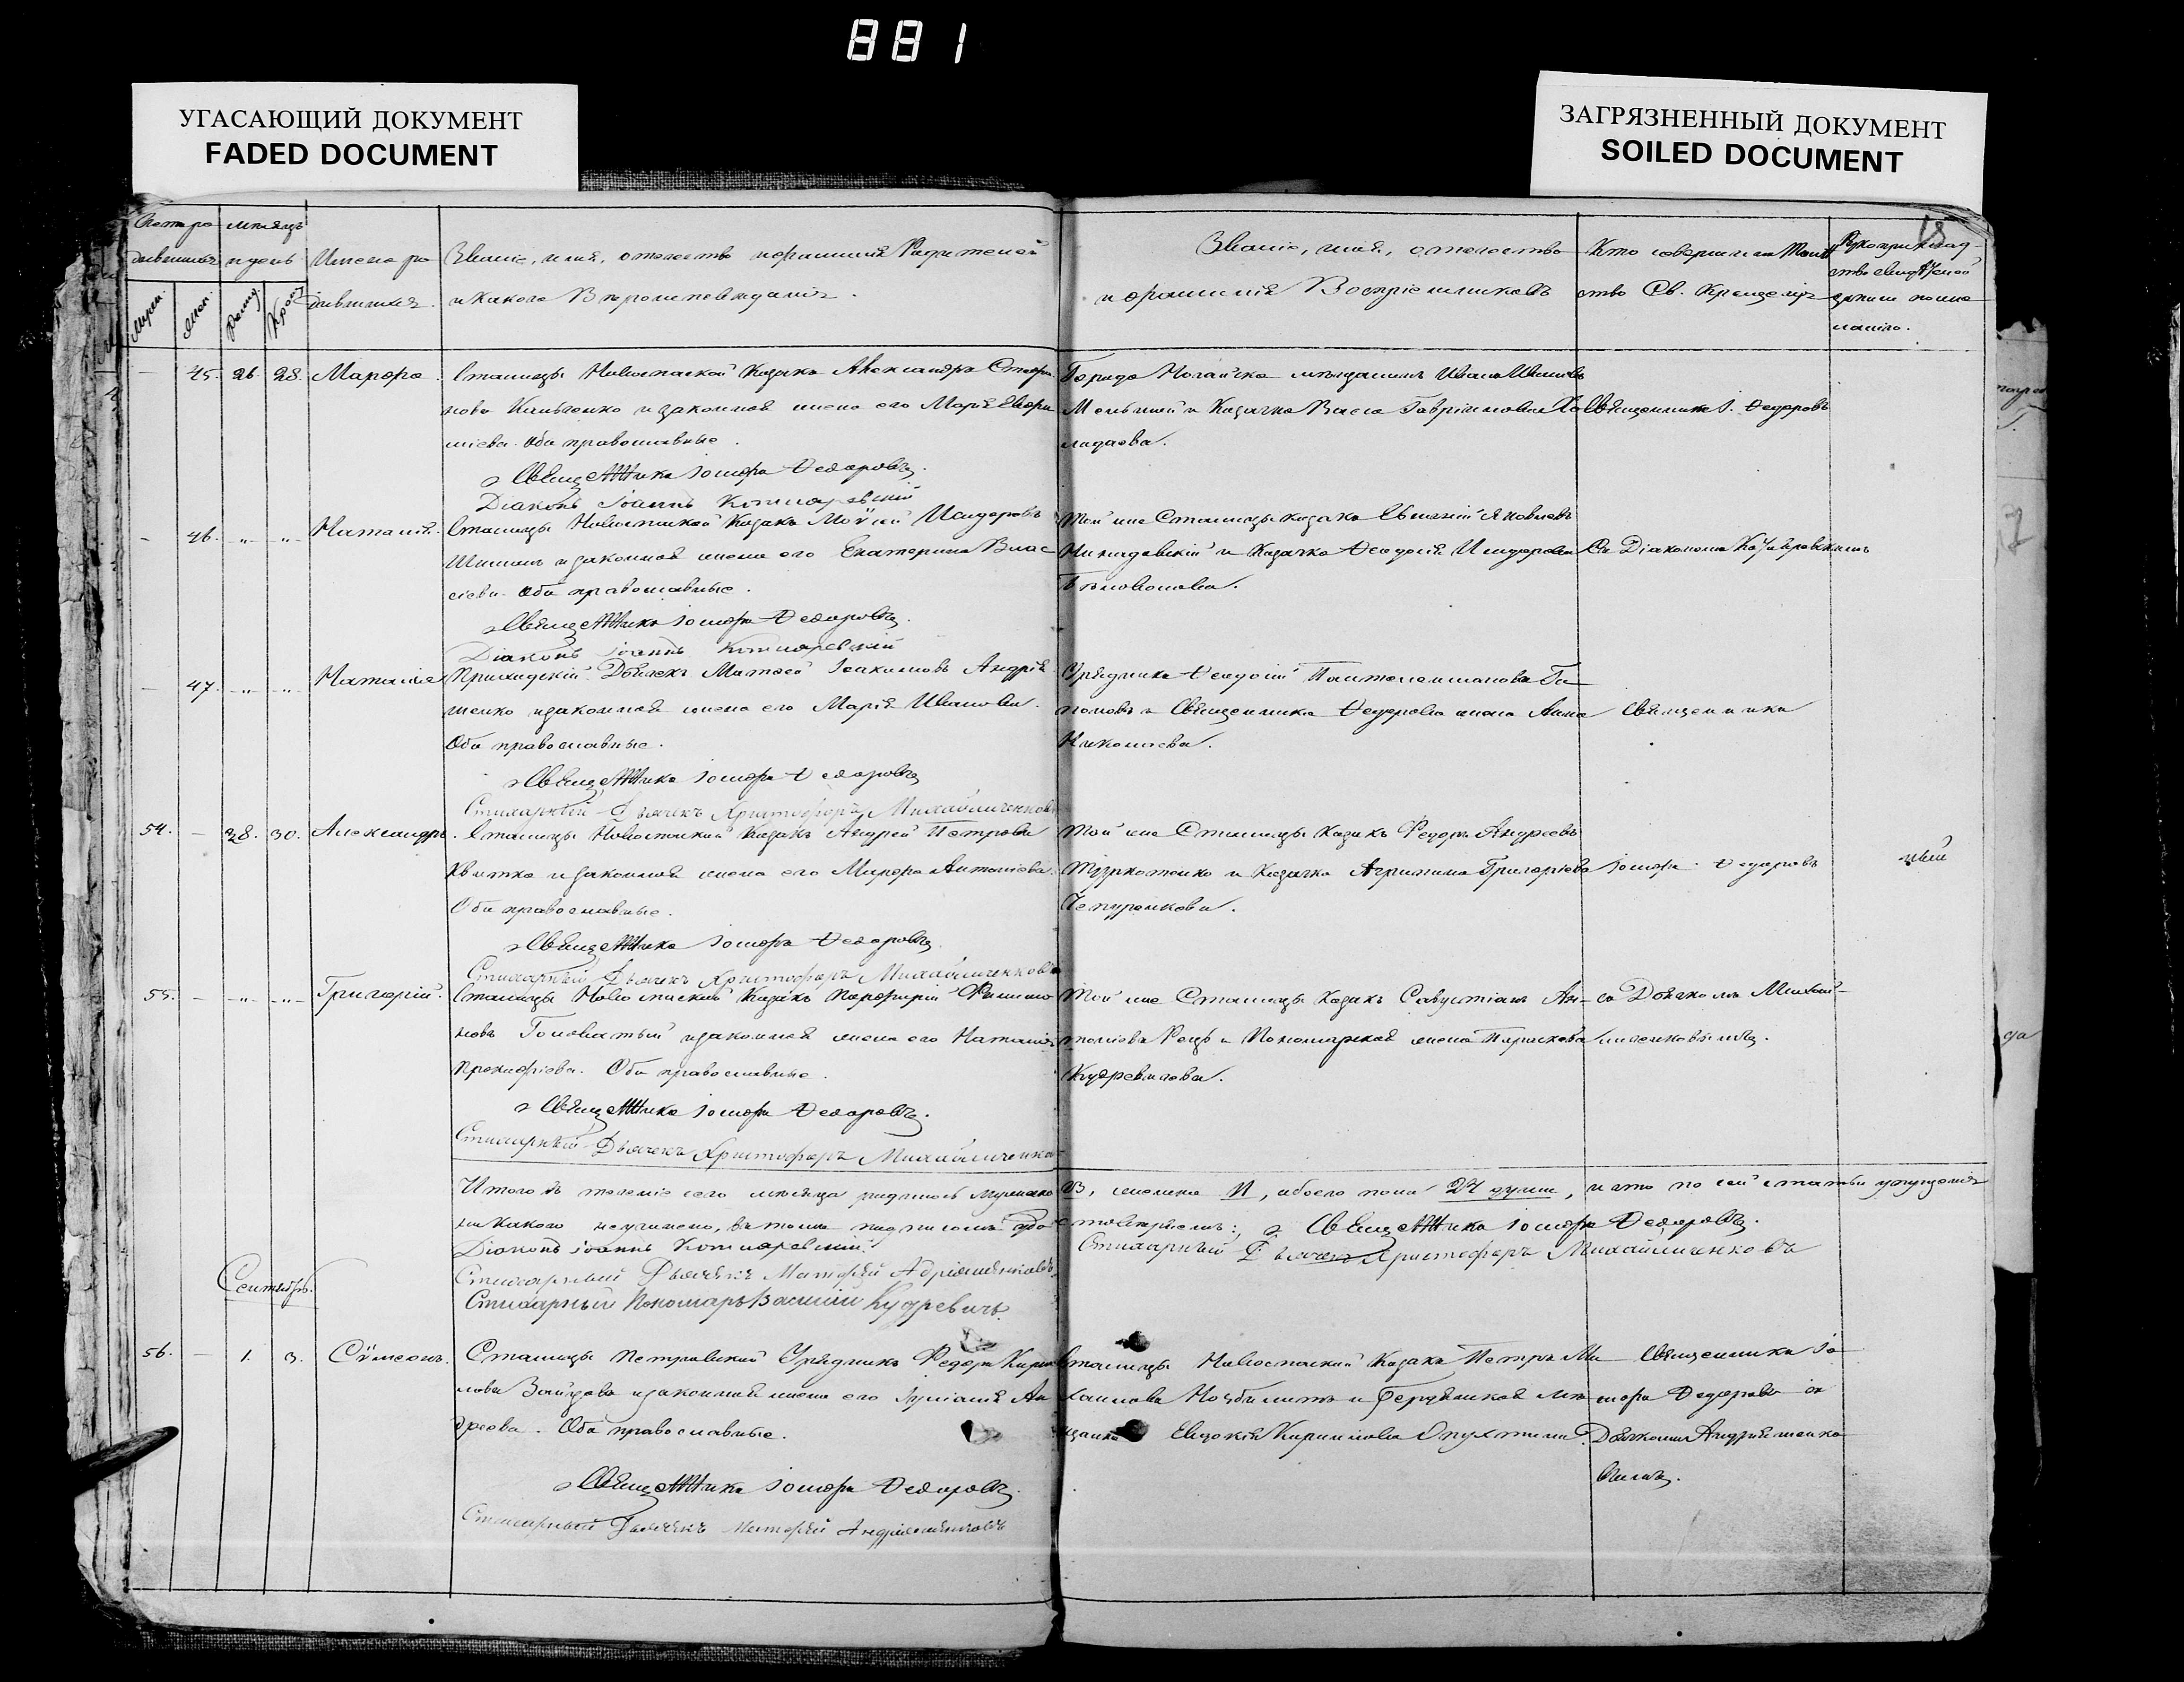 881
УГАСАЮЩИЙ ДОКУМЕНТ
FADED DOCUMENT
ЗАГРЯЗНЕННЫЙ ДОКУМЕНТ
SOILED DOCUMENT
18
Счетъ ро
дившихся
мѣсяцъ
и день
Имена ро
дившихся.
Званіе, имя, отечество и фамилія Родителей
и какого Вѣроисповѣданія.
Званіе, имя, отечество
и фамилія Воспріемниковъ
Кто совершалъ Таин
ство Св. Крещенія
Рукоприклад-
ство свидѣтелей
записи по же
ланію.
45. 26. 28. Марѳа.
Станицы Новоспаской Казакъ Александръ Стефа
новъ и законная жена его Марія
Оба православные.
Священникъ Іосифъ Ѳедоровъ.
Діаконъ Іоаннъ Котляревскій
Города Ногайска мѣщанинъ Иванъ Ивановъ
и Казачка Васса Гавріилова
Священникъ І. Ѳедоровъ
46. " " Наталія.
Станицы Новоспаской Казакъ Моѵсей Исидоровъ
и законная жена его Екатерина Влас
сіева. Оба православные.
Священникъ Іосифъ Ѳедоровъ.
Діаконъ Іоаннъ Котляревскій
Той же Станицы казакъ Евгеній Яковлевъ
и Казачка Ѳеодосія Исидорова
Съ Діакономъ Котляревскимъ
47. " " Наталія
Приходскій Дьячекъ Матѳей Іоакимовъ Андрія
шенко и законная жена его Марія Иванова.
Оба православные.
Священникъ Іосифъ Ѳедоровъ
Стихарный Дьячекъ Христофоръ Михайличенковъ
Урядникъ Ѳеодосій Пантелеимоновъ Га
поновъ и Священника Ѳедорова жена Анна
Николаева.
Священникъ
54. — 28. 30. Александръ.
Станицы Новоспаской Казакъ Андрей Петровъ
Квитка и законная жена его Марѳа Антоніева.
Оба православные.
Священникъ Іосифъ Ѳедоровъ
Стихарный Дьячекъ Христофоръ Михайличенковъ
Той же Станицы казакъ Федоръ Андреевъ
и Казачка Агрипина Григорьева
Чепурнкова.
Іосифъ Ѳедоровъ
55. — " " Григорій.
Станицы Новоспаской Казакъ Порфирій Филимо
новъ Головатый и законная жена его Наталія
Прокофіева. Оба православные.
Священникъ Іосифъ Ѳедоровъ.
Стихарный Дьячекъ Христофоръ Михайличенко
Той же Станицы Казакъ Савустіанъ Ан-
тоніевъ Рецъ и Пономарская жена Параскева
Кудревичова.
съ Дьячкомъ Михай-
личенковымъ.
Итого въ теченіе сего мѣсяца родилось мужеска 13, женска 11, обоего пола 24 души, и что по сей статьи упущенія
никакого неучинено, въ томъ подписомъ удостовѣряемъ: Священникъ Іосифъ Ѳедоровъ.
Діаконъ Іоаннъ Котляревскій.
Стихарный Дьячекъ Христофоръ Михайличенковъ
Стихарный Дьячекъ Матфей Адріяшенковъ
Стихарный Пономарь Василій Кудревичъ.
Сентябрь.
56. — 1. 3. Сѵмеонъ.
Станицы Петровской Урядникъ Федоръ Кирил
ловъ Зайцевъ и законная жена его Іуліанія Ан
дреева. Оба православные.
Священникъ Іосифъ Ѳедоровъ.
Стихарный Дьячекъ Матфей Андріяшенковъ
Станицы Новоспаской Казакъ Петръ Ми
хаиловъ и Бердянская мѣ
щанка Евдокія Кирилова
Священникъ Іо
сифъ Ѳедоровъ съ
Дьячкомъ Андріяшенко
вымъ.